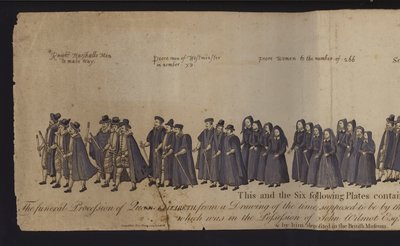 Knight Marshalls Men
to make way.
Poore men of Westminster
in number
Poore Women to the number of 266
This and the Six following Plates contai
The funeral Procession of Queen Elizabeth, from a Drawing of the time, supposed to be by th
which was in the Possession of John Wilmot Esq
& by him deposited in the British Museum.